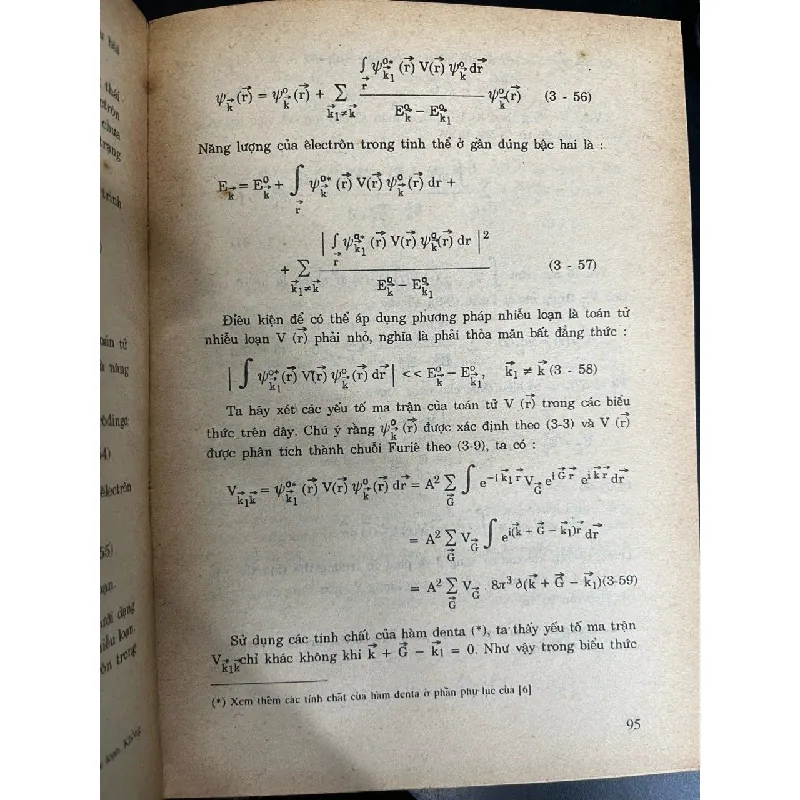 ∫ ψ⁰*_{k⃗₁} (r⃗) V(r⃗) ψ⁰_{k⃗} dr⃗
r⃗
ψ_{k⃗}(r⃗) = ψ⁰_{k⃗}(r⃗) + Σ_{k⃗₁≠k⃗} ———— ψ⁰_{k⃗}(r⃗) (3 - 56)
E⁰_{k⃗} − E⁰_{k⃗₁}
Năng lượng của êlectrôn trong tinh thể ở gần đúng bậc hai là :
E_{k⃗} = E⁰_{k⃗} + ∫_{r⃗} ψ⁰*_{k⃗} (r⃗) V(r⃗) ψ⁰_{k⃗}(r⃗) dr +
| ∫_{r⃗} ψ⁰*_{k⃗₁} (r⃗) V(r⃗) ψ⁰_{k⃗}(r⃗) dr |²
+ Σ_{k⃗₁≠k⃗} ———— (3 - 57)
E⁰_{k⃗} − E⁰_{k⃗₁}
Điều kiện để có thể áp dụng phương pháp nhiễu loạn là toán tử
nhiễu loạn V (r⃗) phải nhỏ, nghĩa là phải thỏa mãn bất đẳng thức :
| ∫ ψ⁰*_{k⃗₁}(r⃗) V(r⃗) ψ⁰_{k⃗}(r⃗) dr⃗ | << E⁰_{k⃗} − E⁰_{k⃗₁}, k⃗₁ ≠ k⃗ (3 - 58)
Ta hãy xét các yếu tố ma trận của toán tử V (r⃗) trong các biểu
thức trên đây. Chú ý rằng ψ⁰_{k⃗} (r⃗) được xác định theo (3-3) và V (r⃗)
được phân tích thành chuỗi Furiê theo (3-9), ta có :
V_{k⃗₁k⃗} = ψ⁰*_{k⃗₁} (r⃗) V(r⃗) ψ⁰_{k⃗}(r⃗) dr⃗ = A² Σ_{G⃗} ∫ e^{−i k⃗₁ r⃗} V_{G⃗} e^{i G⃗ r⃗} e^{i k⃗ r⃗} dr⃗
= A² Σ_{G⃗} V_{G⃗} ∫ e^{i(k⃗ + G⃗ − k⃗₁)r⃗} dr⃗
= A² Σ_{G⃗} V_{G⃗} . 8π³ ∂(k⃗ + G⃗ − k⃗₁)(3-59)
Sử dụng các tính chất của hàm denta (*), ta thấy yếu tố ma trận
V_{k⃗₁k⃗} chỉ khác không khi k⃗ + G⃗ − k⃗₁ = 0. Như vậy trong biểu thức
(*) Xem thêm các tính chất của hàm denta ở phần phụ lục của [6]
95